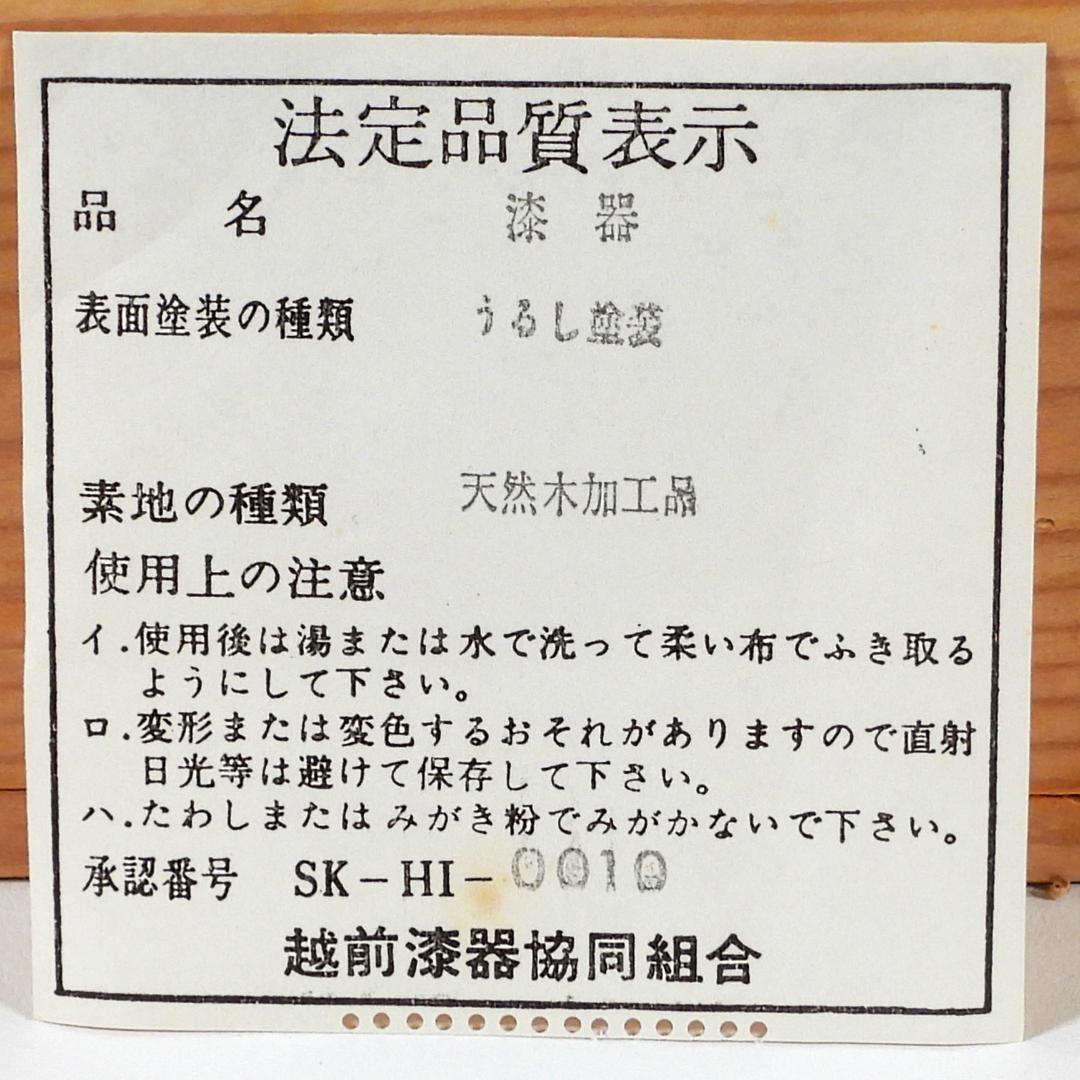 法定品質表示
品名 漆器
表面塗装の種類 うるし塗装
素地の種類 天然木加工品
使用上の注意
イ.使用後は湯または水で洗って柔い布でふき取る
ようにして下さい。
ロ.変形または変色するおそれがありますので直射
日光等は避けて保存して下さい。
ハ.たわしまたはみがき粉でみがかないで下さい。
承認番号 SK-HI-0010
越前漆器協同組合